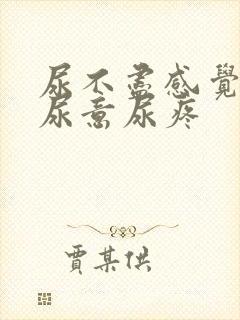 尿不盡感覺
尿意尿疼
賈某供